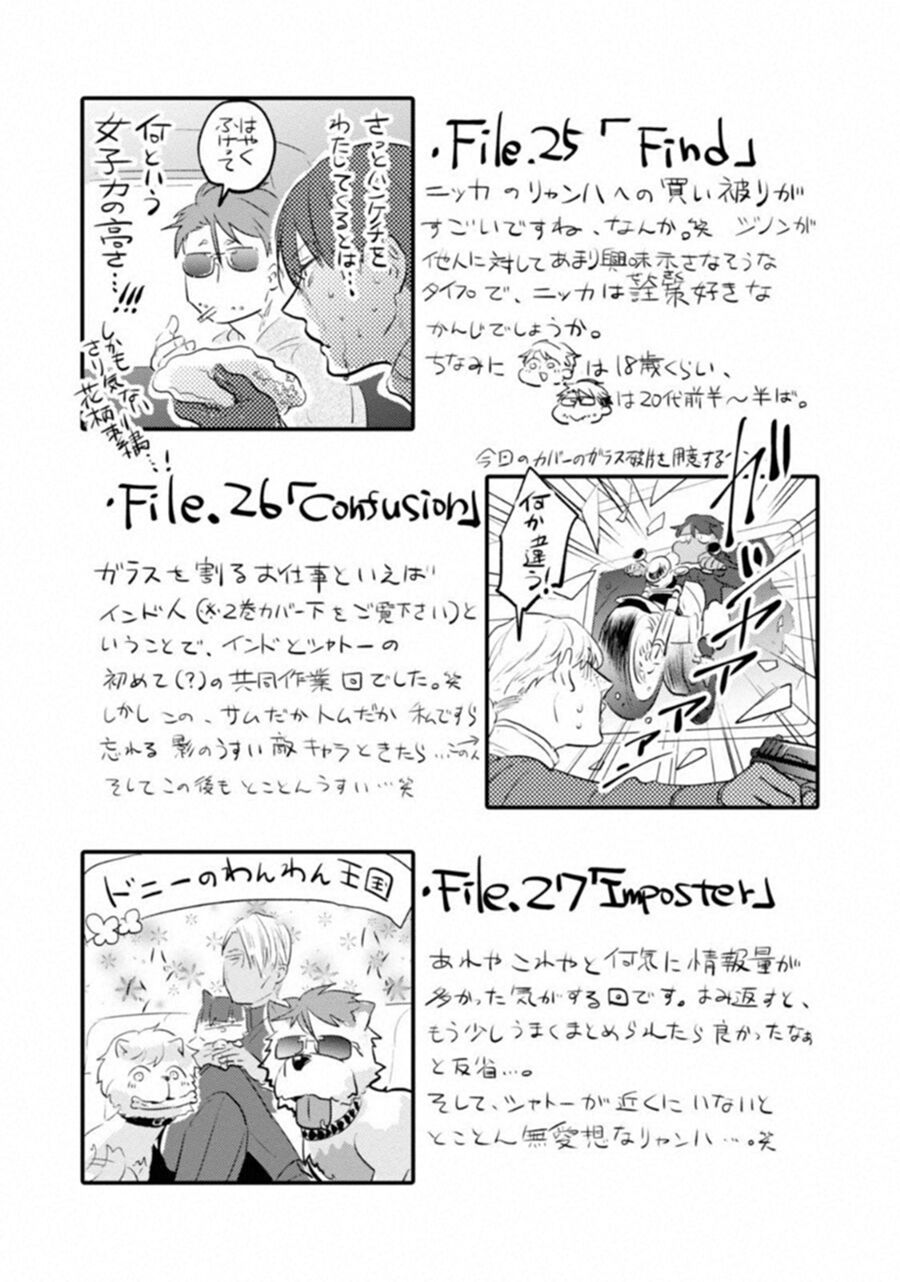 ・File.25「Find」
ニッカのリャンハへの買い被りが
すごいですね、なんか。笑 ジノンが
他人に対してあまり興味示さなそうな
タイプで、ニッカは詮索好きな
かんじでしょうか。
ちなみに は18歳くらい、
は20代前半〜半ば。
さっとハンケチを
わたしてくるとは…
はやく
ふけって
何という
女子力の高さ…!!!
しかも気ない
さり花柄刺繍…!
・File.26「Confusion」
ガラスを割るお仕事といえば
インド人(※2巻カバー下をご覧下さい)と
いうことで、インドとシャトーの
初めて(?)の共同作業回でした。笑
しかしこの、サムだかトムだか私ですら
忘れる影のうすい敵キャラときたら…この人→
そしてこの後もとことんうすい…笑
今回のカバーのガラス破片を用意するイン
何か違う!
ドヤァァァァ
・File.27「Imposter」
あれやこれやと何気に情報量が
多かった気がする回です。よみ返すと、
もう少しうまくまとめられたら良かったなぁ
と反省…。
そして、シャトーが近くにいないと
とことん無愛想なリャンハ…。笑
ドニーのわんわん王国